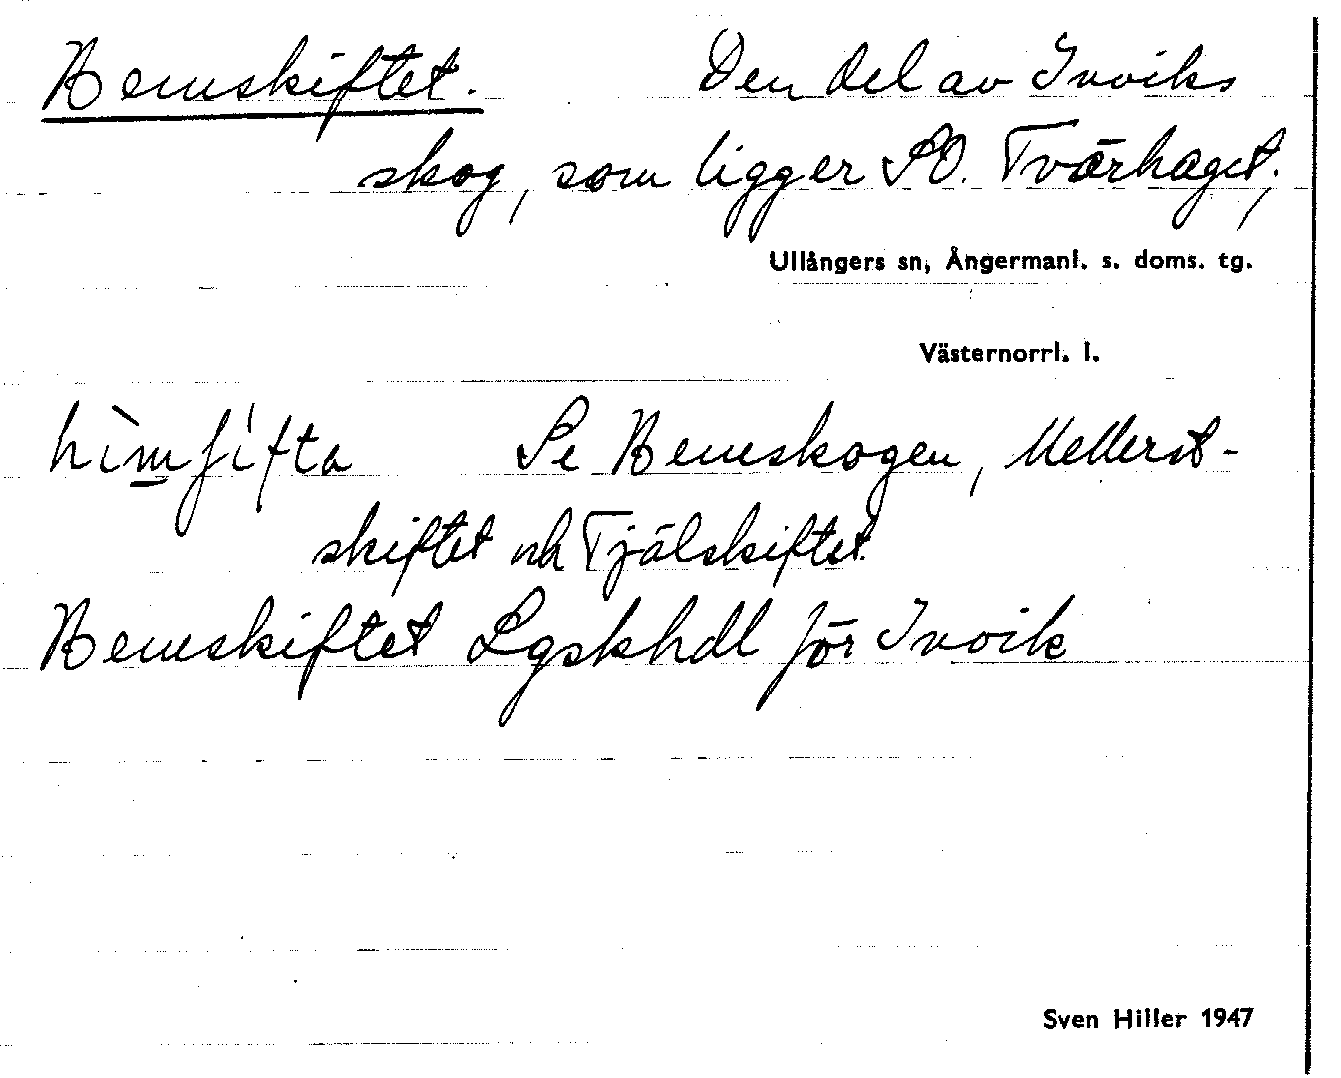 Hemskiftet. Den del av Inviks
skog, som ligger SO. Tvärhaget;
Ullångers sn, Ångermanl. s. doms. tg.
Västernorrl. l.
Se Hemskogen, Mellerst-
skiftet och Tjälskiftet.
Hemskiftet Lgskhdl för Invik
Sven Hiller 1947